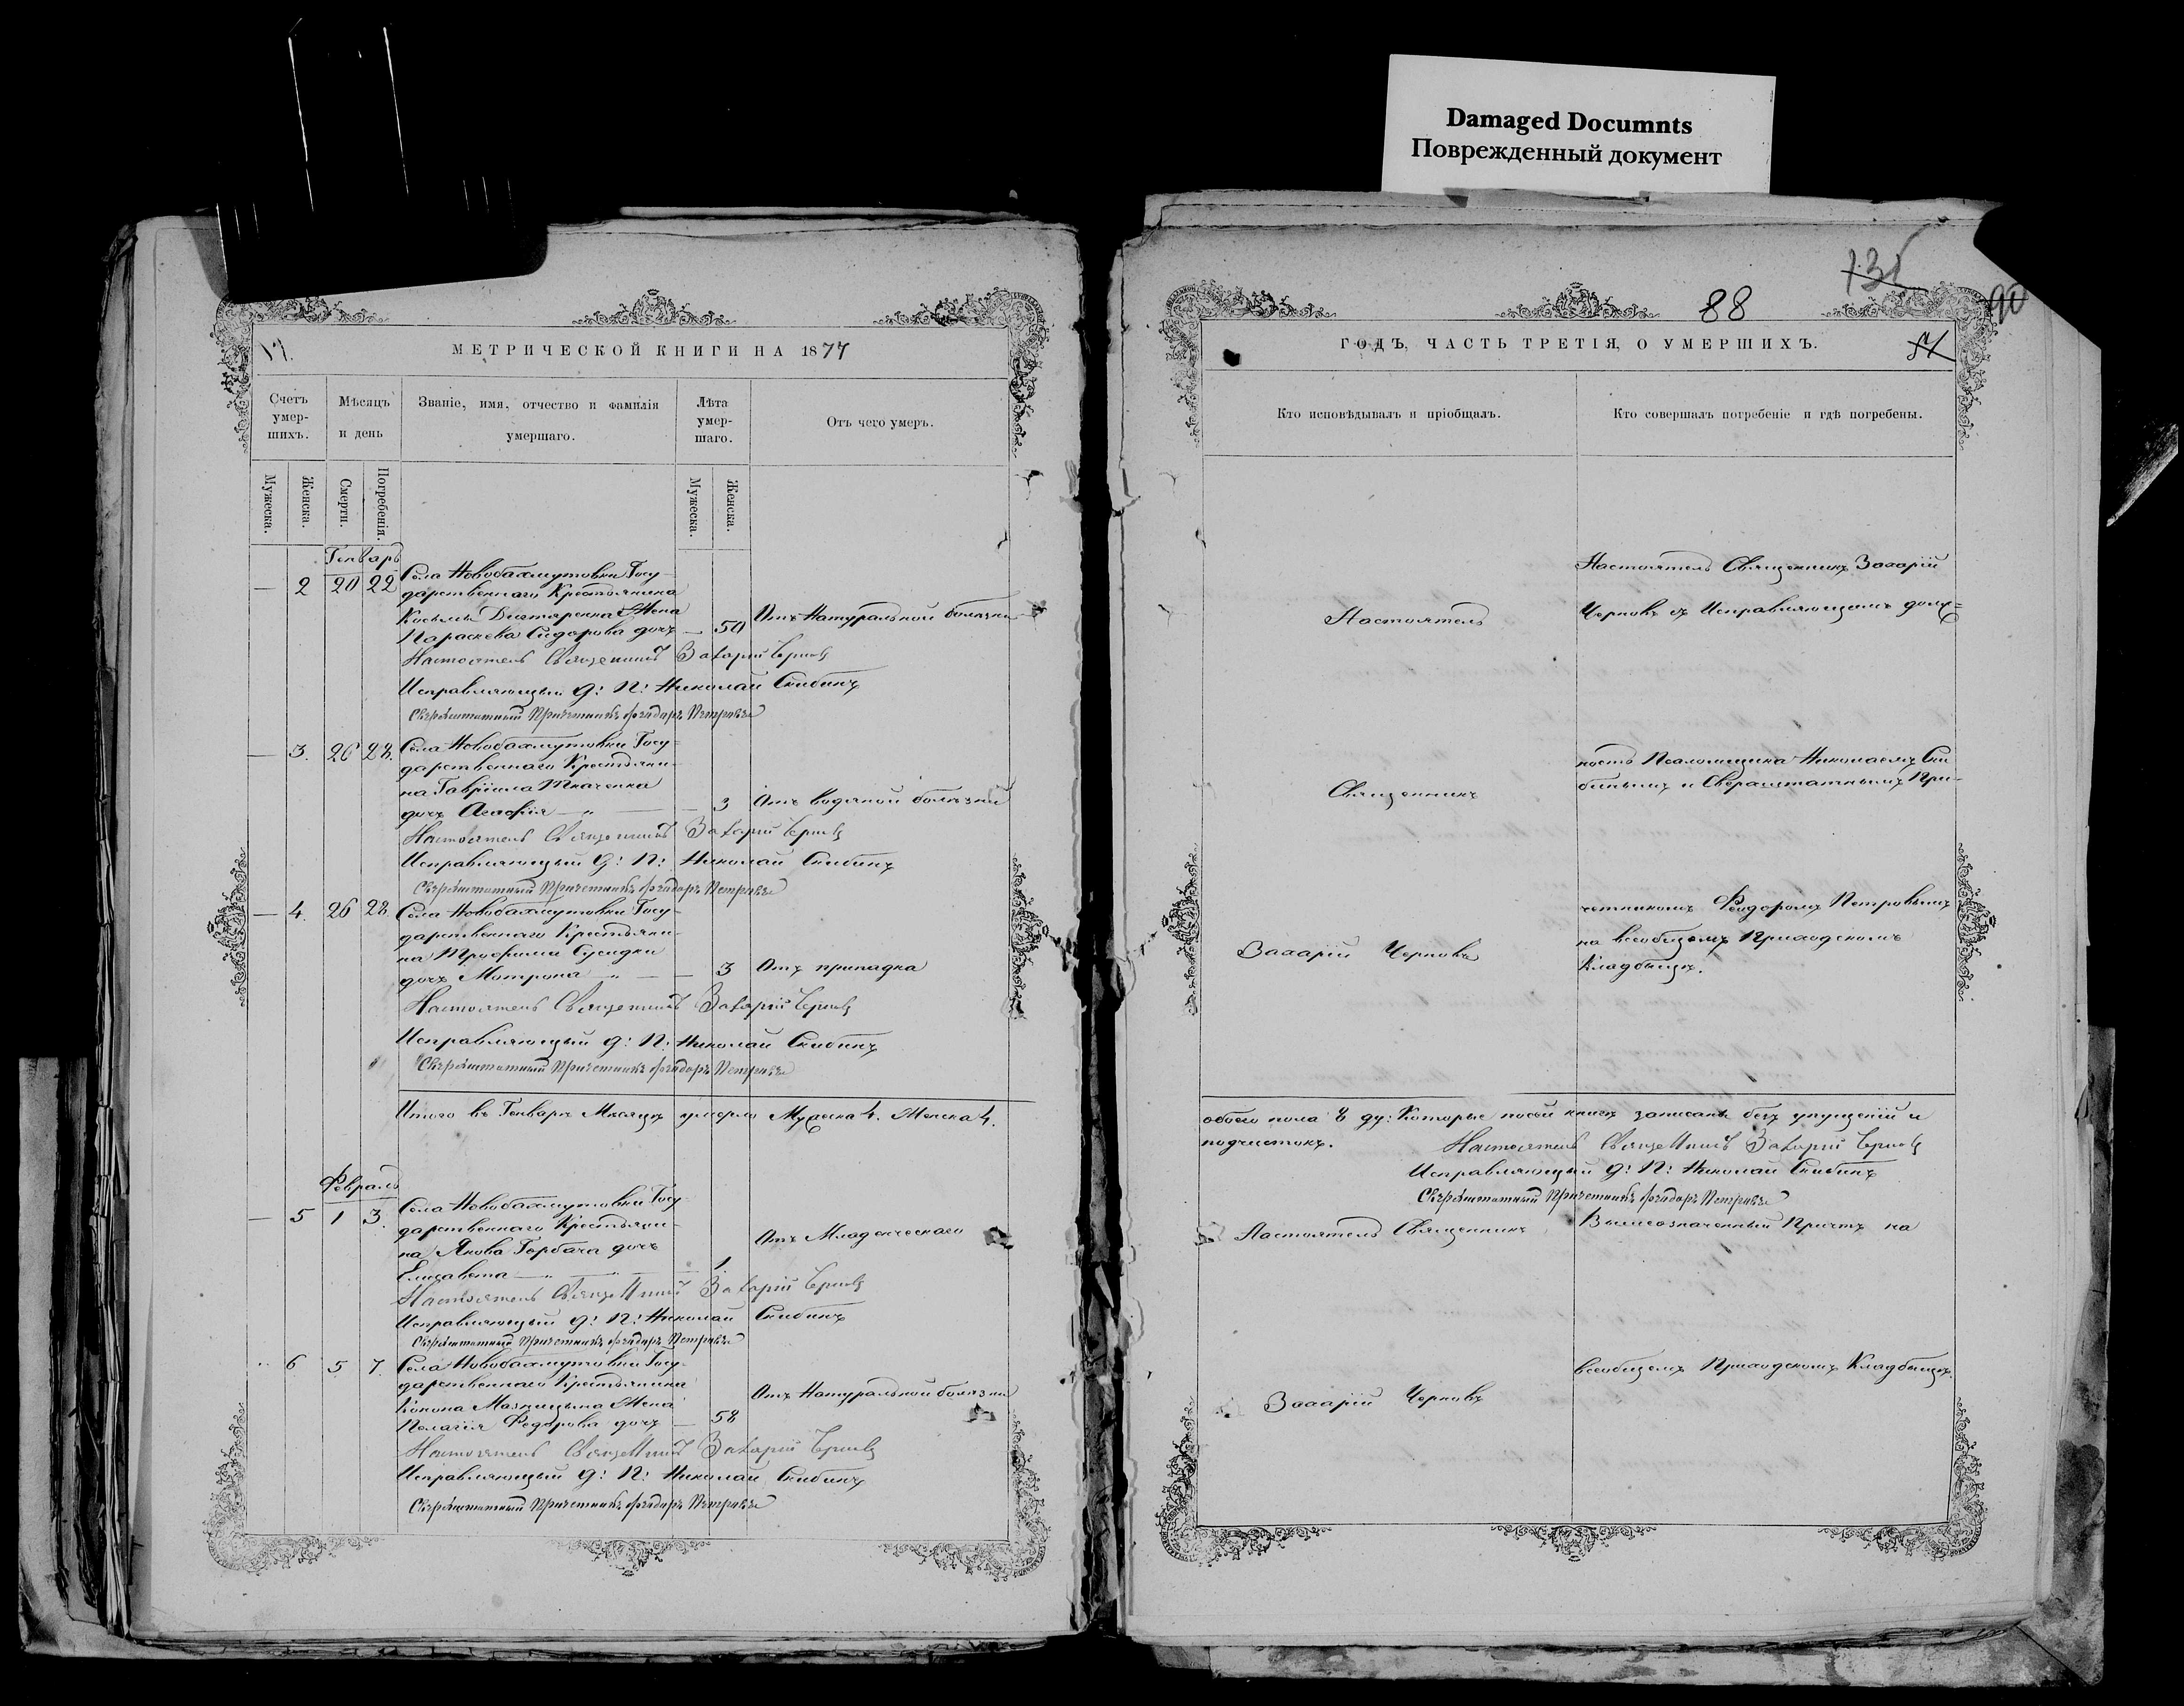 Damaged Documnts
Поврежденный документ
МЕТРИЧЕСКОЙ КНИГИ НА 1877
Счетъ умер-шихъ.
Мѣсяцъ и день
Званіе, имя, отчество и фамилія умершаго.
Лѣта умер-шаго.
Отъ чего умеръ.
Мужеска.
Женска.
Смерти.
Погребенія.
Мужеска.
Женска.
Генварь
— 2 20 22 Села Новобахмутовки Госу-
дарственнаго Крестьянина
Косьмы Жена
Параскева Сидорова дочь — 50 Отъ Натуральной болѣзни
Настоятель Священникъ Захарій Черновъ
Исправляющій д: П: Николай Скибинъ
Сверхштатный Причетникъ Феодоръ Петровъ
— 3. 26 28. Села Новобахмутовки Госу-
дарственнаго Крестьяни-
на Гавріила Ткаченка
дочь Агафія — " — — 3 Отъ водяной болѣзни
Настоятель Священникъ Захарій Черновъ
Исправляющій д: П: Николай Скибинъ
Сверхштатный Причетникъ Феодоръ Петровъ
— 4. 26 28. Села Новобахмутовки Госу-
дарственнаго Крестьяни-
на Трофима Сусидки
дочь Мотрона — " — — 3 Отъ припадка
Настоятель Священникъ Захарій Черновъ
Исправляющій д: П: Николай Скибинъ
Сверхштатный Причетникъ Феодоръ Петровъ
Итого въ Генварѣ Мѣсяцѣ умерло Мужеска 4. Женска 4.
Февраль
— 5 1 3. Села Новобахмутовки Госу-
дарственнаго Крестьяни-
на Якова Горбача дочь Отъ Младенческаго
Елисавета — " — " — 1
Настоятель Священникъ Захарій Черновъ
Исправляющій д: П: Николай Скибинъ
Сверхштатный Причетникъ Феодоръ Петровъ
" 6 5 7. Села Новобахмутовки Госу-
дарственнаго Крестьянина
Конона Жена Отъ Натуральной болѣзни
Пелагія Федорова дочь — 58
Настоятель Священникъ Захарій Черновъ
Исправляющій д: П: Николай Скибинъ
Сверхштатный Причетникъ Феодоръ Петровъ
88
90
ГОДЪ, ЧАСТЬ ТРЕТІЯ, О УМЕРШИХЪ.
Кто исповѣдывалъ и пріобщалъ.
Кто совершалъ погребеніе и гдѣ погребены.
Настоятель Священникъ Захарій
Настоятель Черновъ съ Исправляющимъ долж=
Священникъ ность Псаломщика Николаемъ Ски
бинымъ и Сверхштатнымъ При-
четникомъ Феодоромъ Петровымъ
Захарій Черновъ на всеобщемъ Приходскомъ
Кладбищѣ.
обоего пола 8 ду: Которые по сей книгѣ записаны безъ упущеній и
подчистокъ. Настоятель Священникъ Захарій Черновъ
Исправляющій д: П: Николай Скибинъ
Сверхштатный Причетникъ Феодоръ Петровъ
Настоятель Священникъ Вышеозначенный Причтъ на
Захарій Черновъ всеобщемъ Приходскомъ Кладбищѣ.